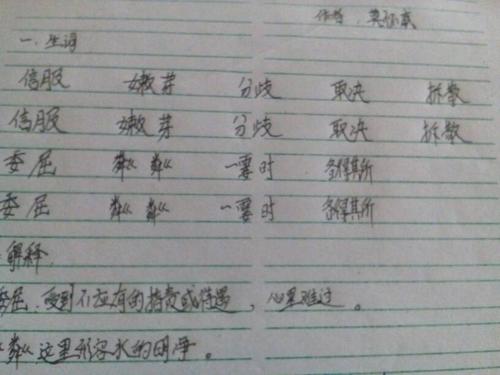 作者：莫怀戚
一、生词
信服 嫩芽 分歧 取决 拆散
信服 嫩芽 分歧 取决 拆散
委屈 粼粼 一霎时 各得其所
委屈 粼粼 一霎时 各得其所
解释
委屈：受到不应有的指责或待遇，心里难过。
粼这里形容水的明净。